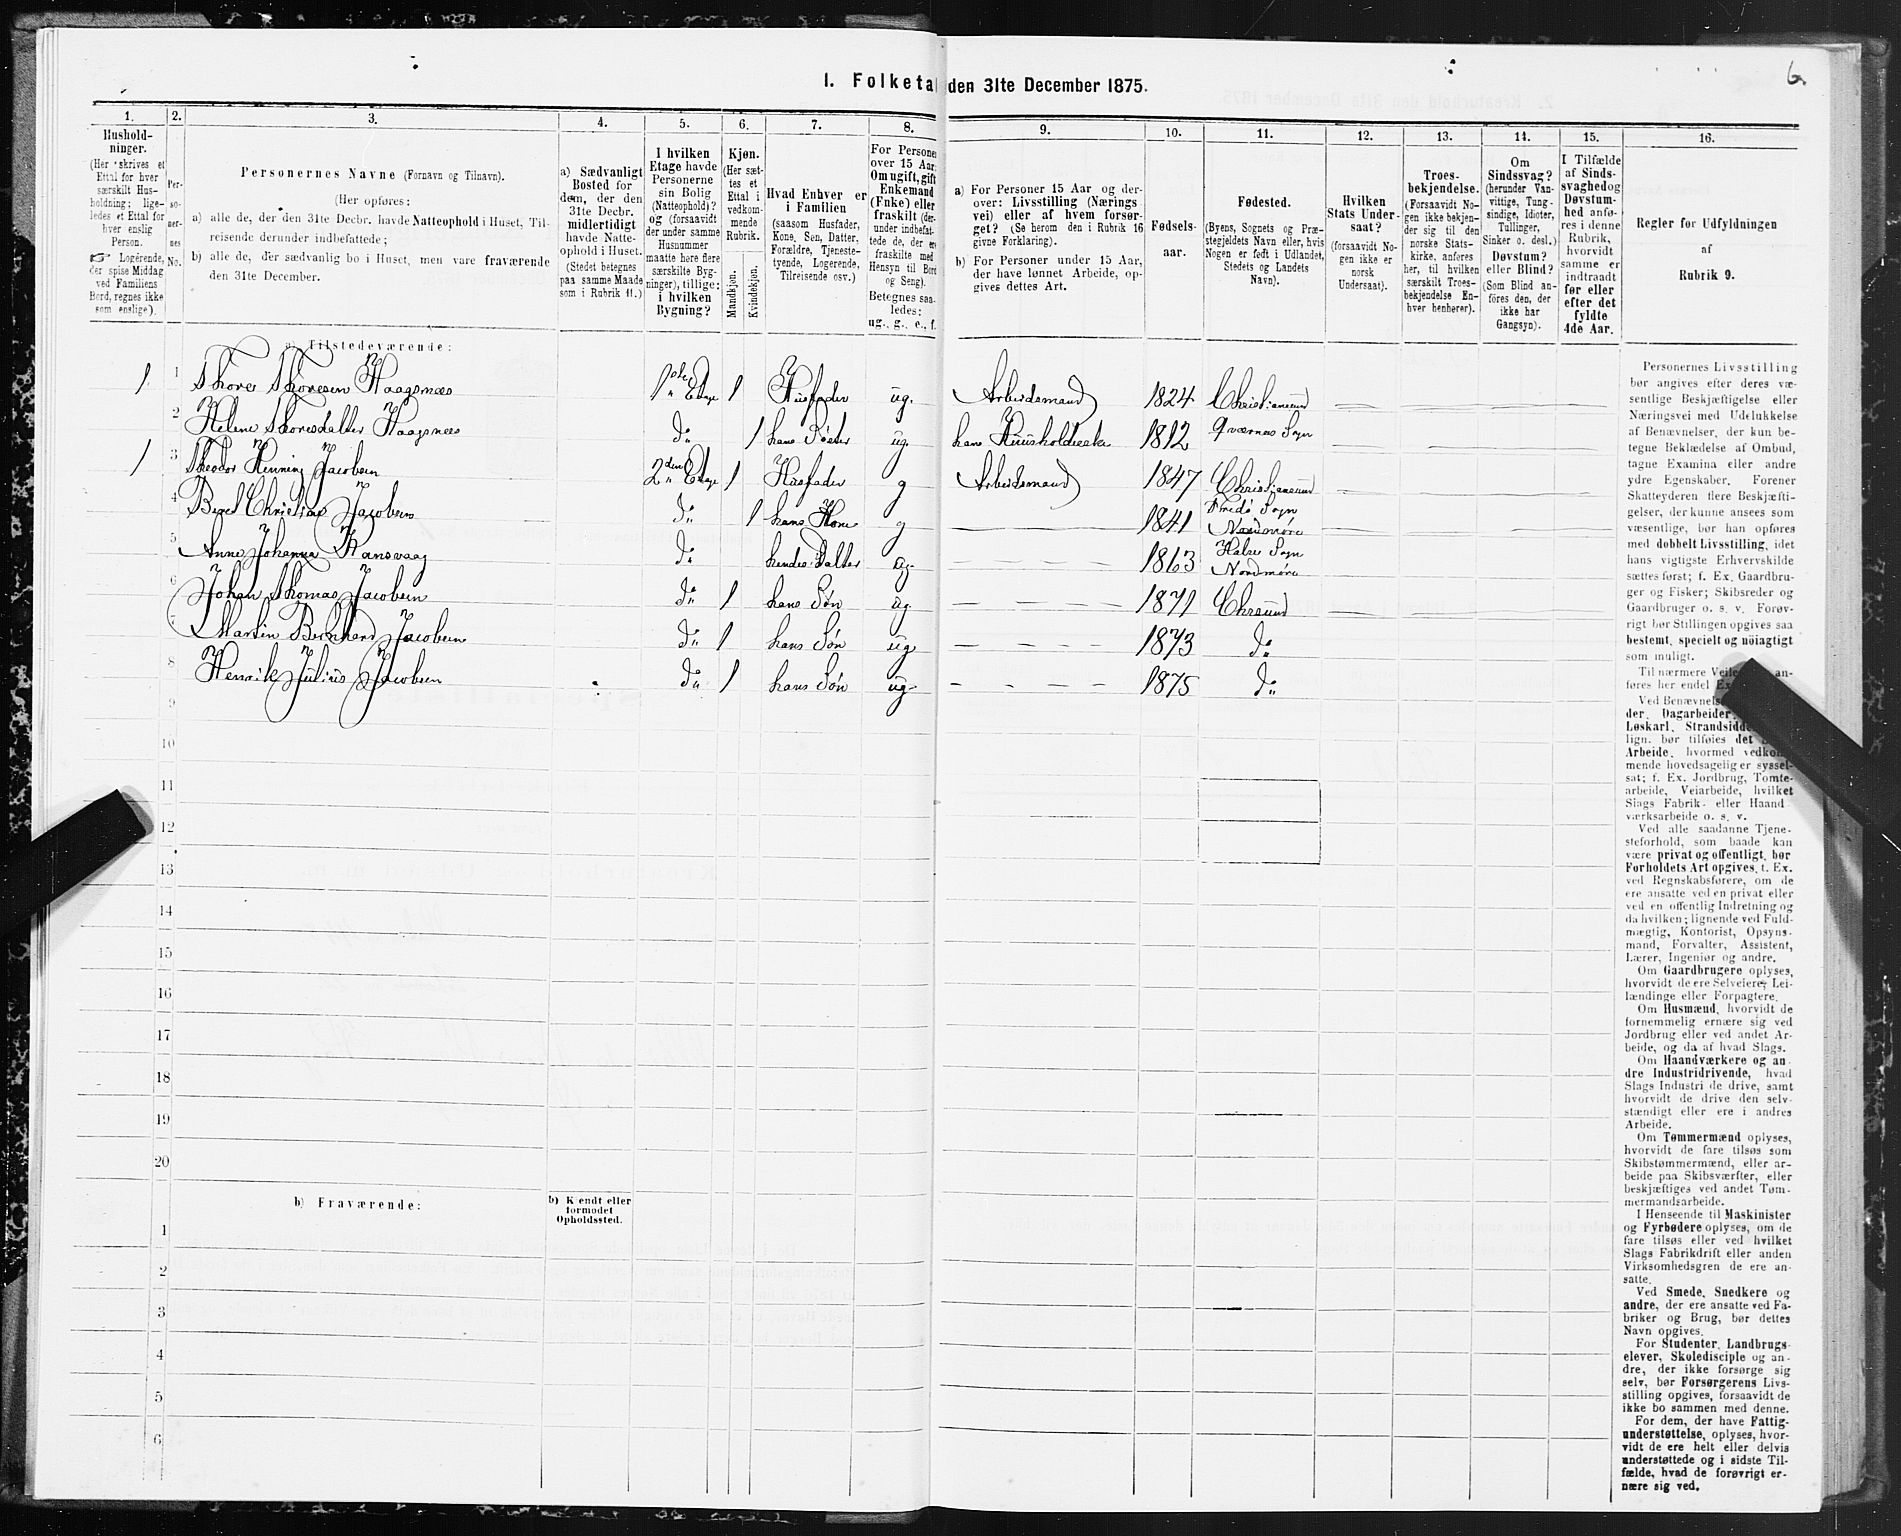 I. Folketal den 31te December 1875.
6.
1.
Hushold-
ninger.
(Her skrives et
Ettal for hver
særskilt Hus-
holdning; lige-
ledes et Ettal for
hver enslig
Person.
☞ Logérende,
der spise Middag
ved Familiens
Bord, regnes ikke
som enslige).
2.
Per-
so-
ner-
nes
No.
3.
Personernes Navne (Fornavn og Tilnavn).
(Her opføres:
a) alle de, der den 31te Decbr. havde Natteophold i Huset, Til-
reisende derunder indbefattede;
b) alle de, der sædvanlig bo i Huset, men vare fraværende
den 31te December.
4.
a) Sædvanligt
Bosted for
dem, der den
31te Decbr.
midlertidigt
havde Natte-
ophold i Huset.
(Stedet betegnes
paa samme Maade
som i Rubrik 11.)
5.
I hvilken
Etage havde
Personerne
sin Bolig
(Natteophold)?
og (forsaavidt
der under samme
Husnummer
maatte høre flere
særskilte Byg-
ninger), tillige:
i hvilken
Bygning?
6.
Kjøn.
(Her sæt-
tes et
Ettal i
vedkom-
mende
Rubrik.
Mandkjøn.
Kvindekjøn.
7.
Hvad Enhver er
i Familien
(saasom Husfader,
Kone, Søn, Datter,
Forældre, Tjeneste-
tyende, Logerende,
Tilreisende osv.)
8.
For Personer
over 15 Aar:
Om ugift, gift
Enkemand
(Enke) eller
fraskilt (der-
under indbefat-
tede de, der er
fraskilte med
Hensyn til Bord
og Seng).
Betegnes saa-
ledes:
ug., g., e., f.
9.
a) For Personer 15 Aar og der-
over: Livsstilling (Nærings
vei) eller af hvem forsør-
get? (Se herom den i Rubrik 16
givne Forklaring).
b) For Personer under 15 Aar,
der have lønnet Arbeide, op-
gives dettes Art.
10.
Fødsels-
aar.
11.
Fødested.
(Byens, Sognets og Præ-
stegjeldets Navn eller, hvis
Nogen er født i Udlandet,
Stedets og Landets
Navn).
12.
Hvilken
Stats Under-
saat?
(forsaavidt No-
gen ikke er
norsk
Undersaat).
13.
Troes-
bekjendelse.
(Forsaavidt No-
gen ikke bekjen-
der sig til den
norske Stats-
kirke, anføres
her, til hvilken
særskilt Troes-
bekjendelse En-
hver henhører).
14.
Om
Sindssvag?
(herunder Van-
vittige, Tung-
sindige, Idioter,
Tullinger,
Sinker o. desl.)
Døvstum?
eller Blind?
(Som Blind an-
føres den, der
ikke har
Gangsyn).
15.
I Tilfælde
af Sinds-
svaghed og
Døvstum-
hed anfø-
res i denne
Rubrik,
hvorvidt
samme er
indtraadt
før eller
efter det
fyldte
4de Aar.
16.
Regler for Udfyldningen
af
Rubrik 9.
a) Tilstedeværende:
1 1 Thore Thoresen Haagsnæs 1ste Etage 1 Husfader ug. Arbeidsmand 1824 Christiansund
2 Helene Thoresdatter Haagsnæs do 1 hans Søster ug hans Huusholderske 1812 Qværnæs Sogn
1 3 Theodor Henning Jacobsen 2den Etage 1 Husfader g Arbeidsmand 1847 Christiansund
4 Beret Christine Jacobsen do 1 hans Kone g 1841 Fredø Sogn
Nordmøre
5 Anne Johanna Ransvaag do hendes Datter ug 1863 Halse Sogn
Nordmøre
6 Johan Thomas Jacobsen do 1 hans Søn ug 1871 Chrsund
7 Martin Bernhard Jacobsen do 1 hans Søn ug 1873 do
8 Henrik Julius Jacobsen do 1 hans Søn ug 1875 do
9
10
11
12
13
14
15
16
17
18
19
20
b) Fraværende:
b) Kjendt eller
formodet
Opholdssted.
1
2
3
4
5
6
Personernes Livsstilling
bør angives efter deres væ-
sentlige Beskjæftigelse eller
Næringsvei med Udelukkelse
af Benævnelser, der kun be-
tegne Beklædelse af Ombud,
tagne Examina eller andre
ydre Egenskaber. Forener
Skatteyderen flere Beskjæfti-
gelser, der kunne ansees som
væsentlige, bør han opføres
med dobbelt Livsstilling, idet
hans vigtigste Erhvervskilde
sættes først; f. Ex. Gaardbru-
ger og Fisker; Skibsreder og
Gaardbruger o. s. v. Forøv-
rigt bør Stillingen opgives saa
bestemt, specielt og nöiagtigt
som muligt.
Til nærmere Veile an-
føres her endel Ex
Ved Benævnels
der, Dagarbeider,
Løskarl, Strandsidde
lign. bør tilføies det
Arbeide, hvormed vedkom-
mende hovedsagelig er syssel-
sat; f. Ex. Jordbrug, Tomte-
arbeide, Veiarbeide, hvilket
Slags Fabrik- eller Haand
værksarbeide o. s. v.
Ved alle saadanne Tjene-
steforhold, som baade kan
være privat og offentligt, bør
Forholdets Art opgives, f. Ex.
ved Regnskabsførere, om de
ere ansatte ved en privat eller
ved en offentlig Indretning og
da hvilken; lignende ved Fuld-
mægtig, Kontorist, Opsyns-
mand, Forvalter, Assistent,
Lærer, Ingeniør og andre.
Om Gaardbrugere oplyses,
hvorvidt de ere Selveiere, Lei-
lændinge eller Forpagtere.
Om Husmænd, hvorvidt de
fornemmelig ernære sig ved
Jordbrug eller ved andet Ar-
beide, og da af hvad Slags.
Om Haandværkere og an
dre Industridrivende, hvad
Slags Industri de drive, samt
hvorvidt de drive den selv-
stændigt eller ere i andres
Arbeide.
Om Tømmermænd oplyses,
hvorvidt de fare tilsøs som
Skibstømmermænd, eller ar-
beide paa Skibsværfter, eller
beskjæftiges ved andet Tøm-
mermandsarbeide.
I Henseende til Maskinister
og Fyrbødere oplyses, om de
fare tilsøs eller ved hvilket
Slags Fabrikdrift eller anden
Virksomhedsgren de ere an-
satte.
Ved Smede, Snedkere og
andre, der ere ansatte ved Fa-
briker og Brug, bør dettes
Navn opgives.
For Studenter, Landbrugs-
elever, Skoledisciple og an-
dre, der ikke forsørge sig
selv, bør Forsørgerens Livs-
stilling opgives, forsaavidt de
ikke bo sammen med denne.
For dem, der have Fattig-
understøttelse, oplyses, hvor-
vidt de ere helt eller delvis
understøttede og i sidste Til-
fælde, hvad de forøvrigt er-
nære sig ved.